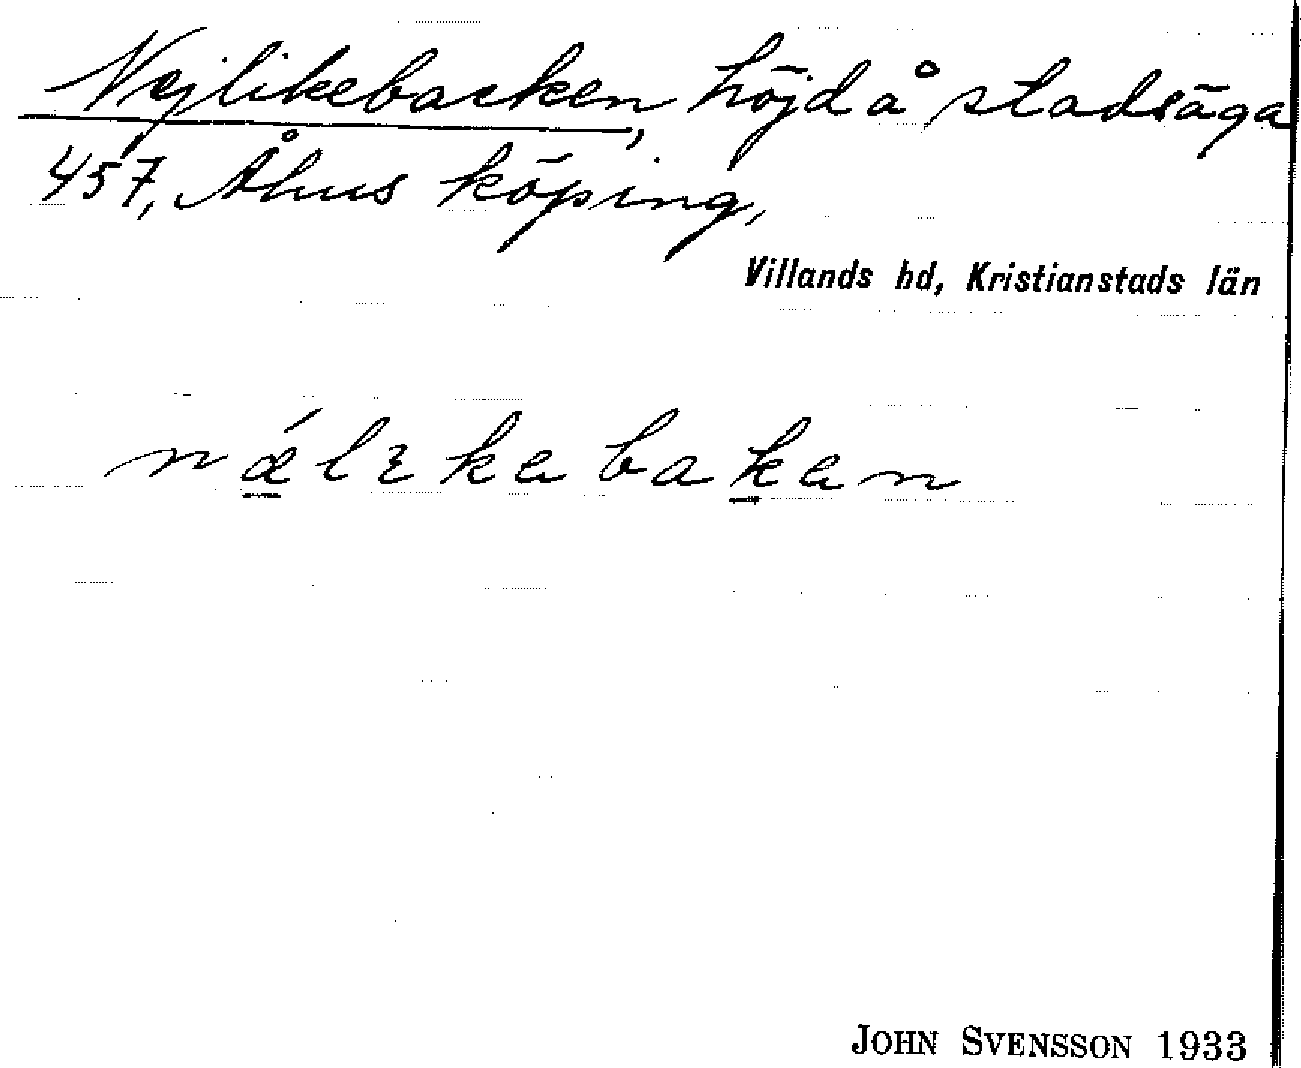 Nejlikebacken, höjd å stadsäga
457, Åhus köping,
Villands hd, Kristianstads län
nǽlɪkabakan
JOHN SVENSSON 1933